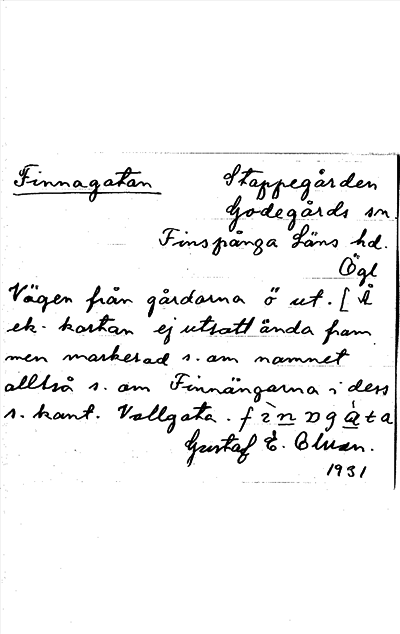 Finnagatan Stappegården
Godegårds sn.
Finspånga Läns hd.
Ögl
Vägen från gårdarna ö ut. [Å
ek. kartan ej utsatt ända fram
men markerad s. om namnet
alltså s. om Finnängarna i dess
s. kant. Vallgata.
Gustaf E.
1931